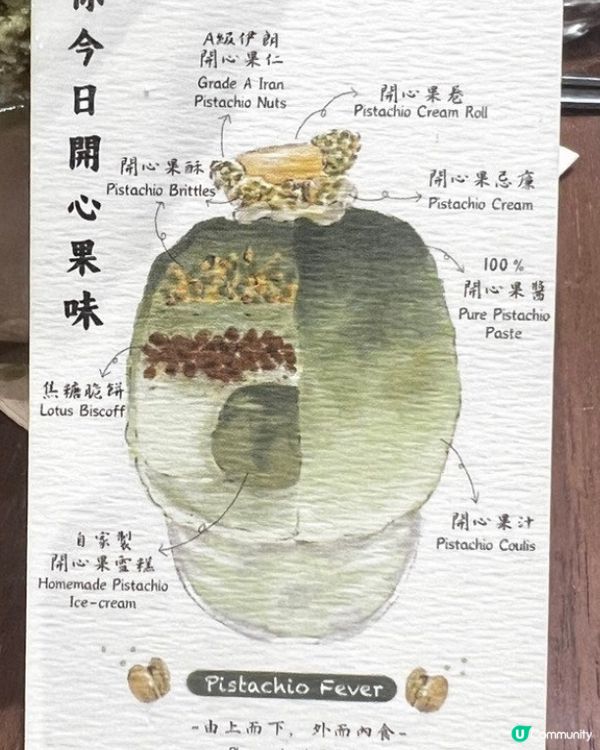 你今日開心果味
A級伊朗
開心果仁
Grade A Iran
Pistachio Nuts
開心果卷
Pistachio Cream Roll
開心果酥
Pistachio Brittles
開心果忌廉
Pistachio Cream
100%
開心果醬
Pure Pistachio
Paste
焦糖脆餅
Lotus Biscoff
開心果汁
Pistachio Coulis
自家製
開心果雪糕
Homemade Pistachio
Ice-cream
Pistachio Fever
-由上而下，外而內食-
U Community